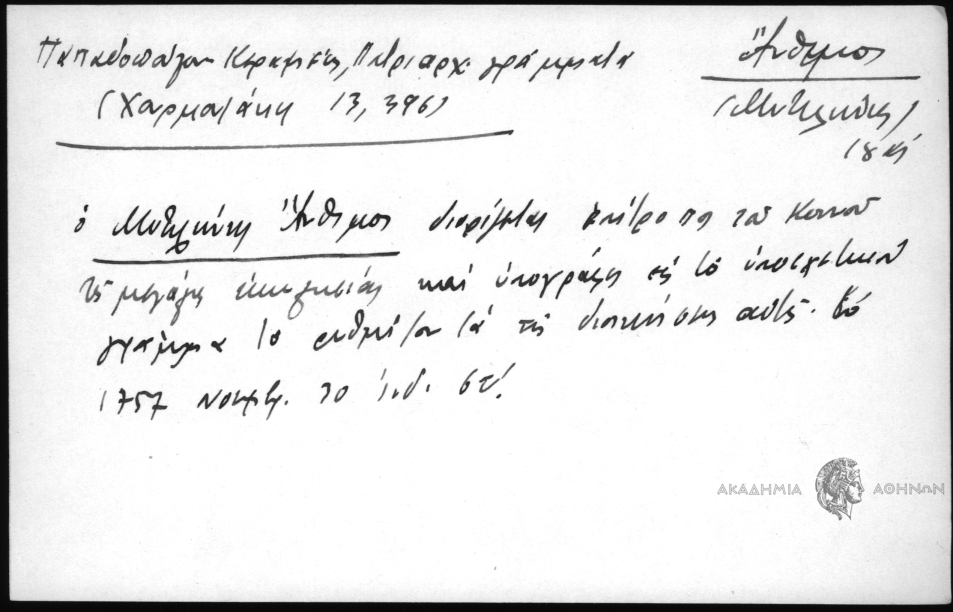 Παπαδοπούλου Κεραμέως, Πατριαρχ. γράμματα
(Χαρματάκη 13, 396)
Ἄνθιμος
(Μυτιλήνης)
18
ὁ Μυτιλήνης Ἄνθιμος διορίζεται ἐπίτροπος τοῦ Κοινοῦ
τῆς μεγάλης ἐκκλησίας καὶ ὑπογράφει εἰς τὸ ὑποσχετικὸν
γράμμα τὸ ρυθμίζον τὰ τῆς διοικήσεως αὐτῆς. Ἐν
1757 νοεμβρ. ἰνδ. στ'.
ΑΚΑΔΗΜΙΑ ΑΘΗΝΩΝ